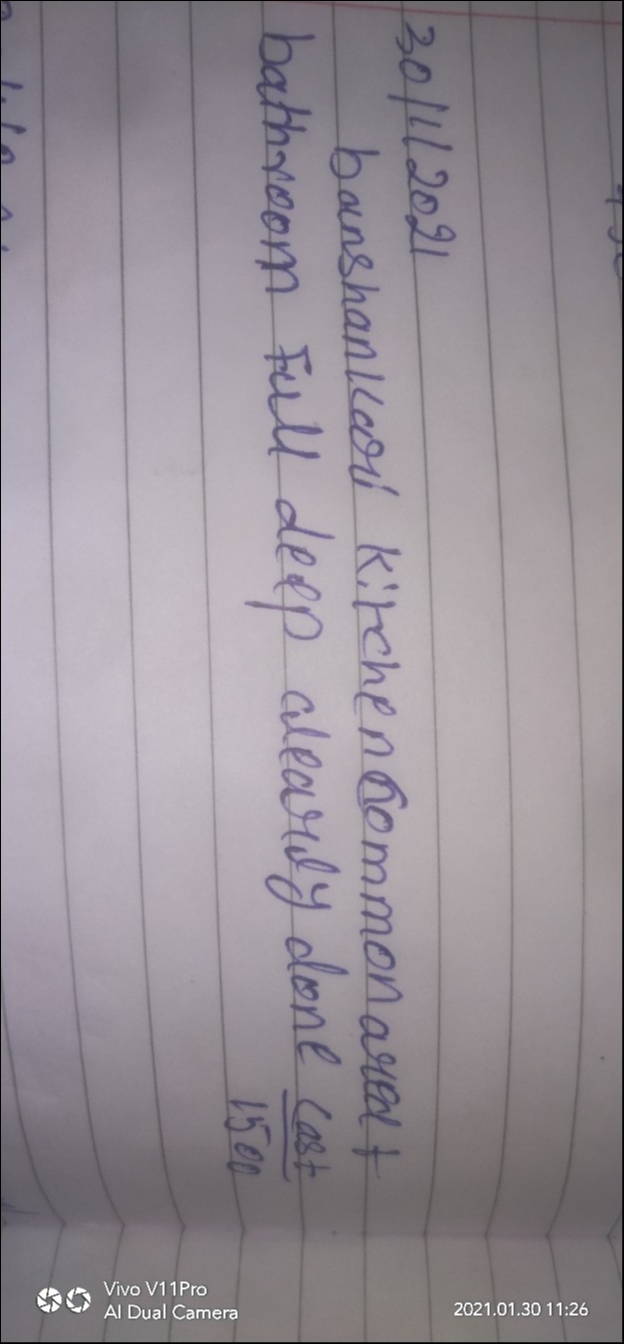 30/1/2021
banshankari kitchen Common area +
bathroom Full deep clearly done cost
1500
Vivo V11Pro
AI Dual Camera
2021.01.30 11:26